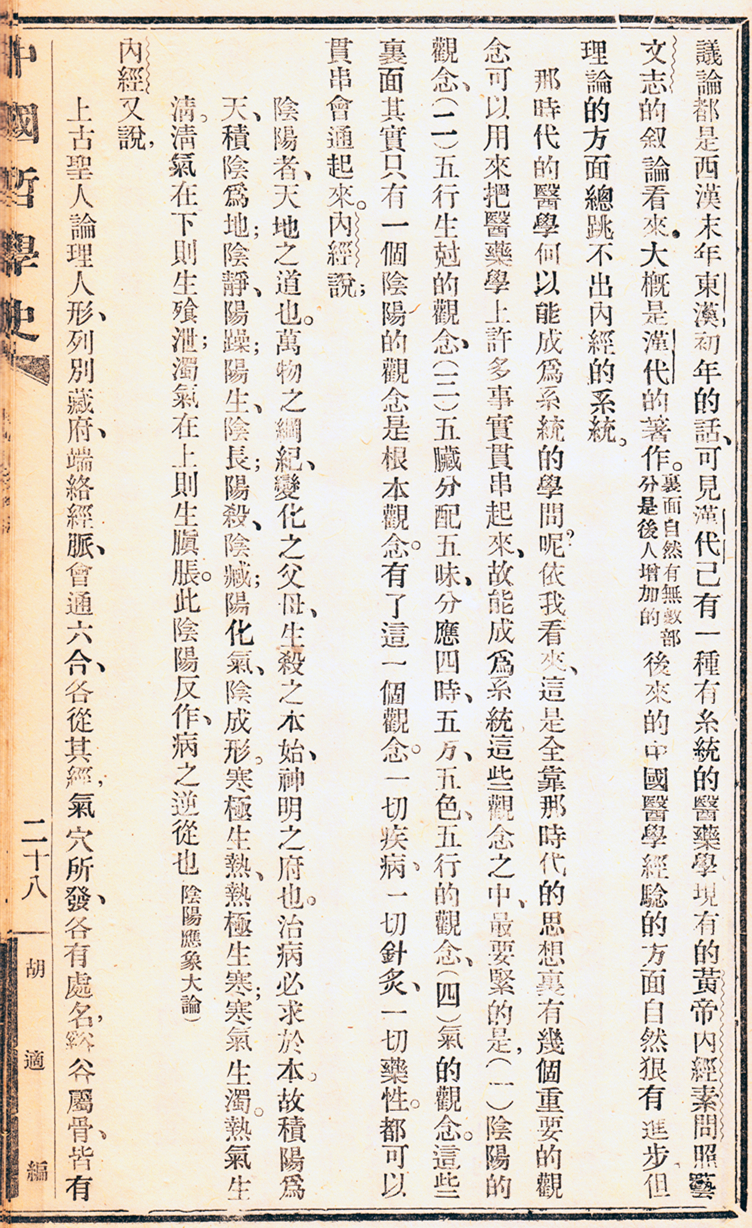 議論都是西漢末年東漢初年的話、可見漢代已有一種有系統的醫藥學現有的黃帝內經素問照藝
文志的敘論看來、大概是漢代的著作。裏面自然有無數部分是後人增加的後來的中國醫學經驗的方面自然狠有進步、但
理論的方面總跳不出內經的系統。
那時代的醫學何以能成爲系統的學問呢？依我看來、這是全靠那時代的思想裏有幾個重要的觀
念可以用來把醫藥學上許多事實貫串起來、故能成爲系統這些觀念之中、最要緊的是、（一）陰陽的
觀念、（二）五行生尅的觀念、（三）五臟分配五味、分應四時、五方、五色、五行的觀念、（四）氣的觀念。這些
裏面其實只有一個陰陽的觀念是根本觀念。有了這一個觀念。一切疾病、一切針炙、一切藥性。都可以
貫串會通起來。內經說；
陰陽者、天地之道也。萬物之綱紀、變化之父母、生殺之本始、神明之府也。治病必求於本。故積陽爲
天、積陰爲地；陰靜、陽躁；陽生、陰長；陽殺、陰藏；陽化氣、陰成形。寒極生熱、熱極生寒；寒氣生濁。熱氣生
清。清氣在下則生飱泄；濁氣在上則生䐜脹。此陰陽反作、病之逆從也（陰陽應象大論）
內經又說、
上古聖人論理人形、列別藏府、端絡經脈、會通六合、各從其經、氣穴所發、各有處名、谿谷屬骨、皆有
中國哲學史
二十八
胡適編